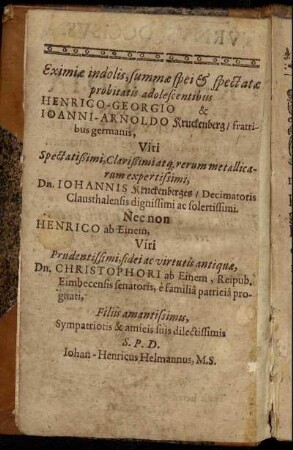 Eximiæ indolis, summæ spei & spectatæ
probitatis adolescentibus
HENRICO-GEORGIO &
IOANNI-ARNOLDO Kruckenberg/ fratri-
bus germanis,
Viri
Spectatissimi, Clarissimi atq, rerum metallica-
rum expertissimi,
Dn. IOHANNIS Kruckenberges/ Decimatoris
Clausthalensis dignissimi ac solertissimi.
Nec non
HENRICO ab Einem,
Viri
Prudentissimi, fidei ac virtutis antiquæ,
Dn. CHRISTOPHORI ab Einem, Reipub.
Eimbecensis senatoris, è familiâ patriciâ pro-
gnati,
Filiis amantissimis,
Sympatriotis & amicis suis dilectissimis
S. P. D.
Iohan-Henricus Helmannus, M.S.